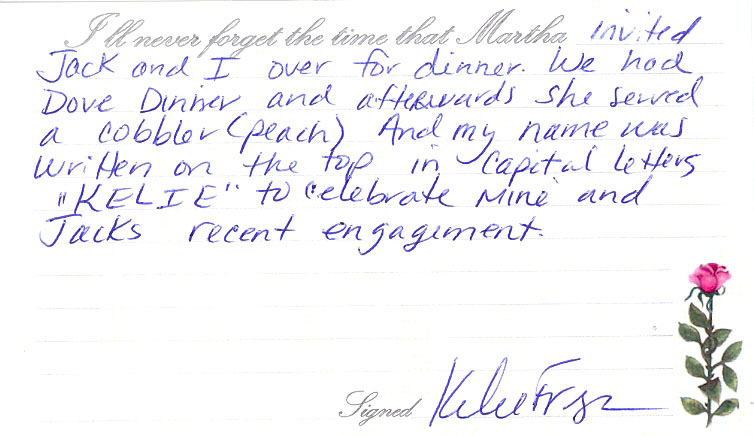 I'll never forget the time that Martha invited
Jack and I over for dinner. We had
Dove Dinner and afterwards she served
a cobbler (peach) And my name was
written on the top in Capital letters
"KELIE" to celebrate Mine and
Jacks recent engagement.
Signed